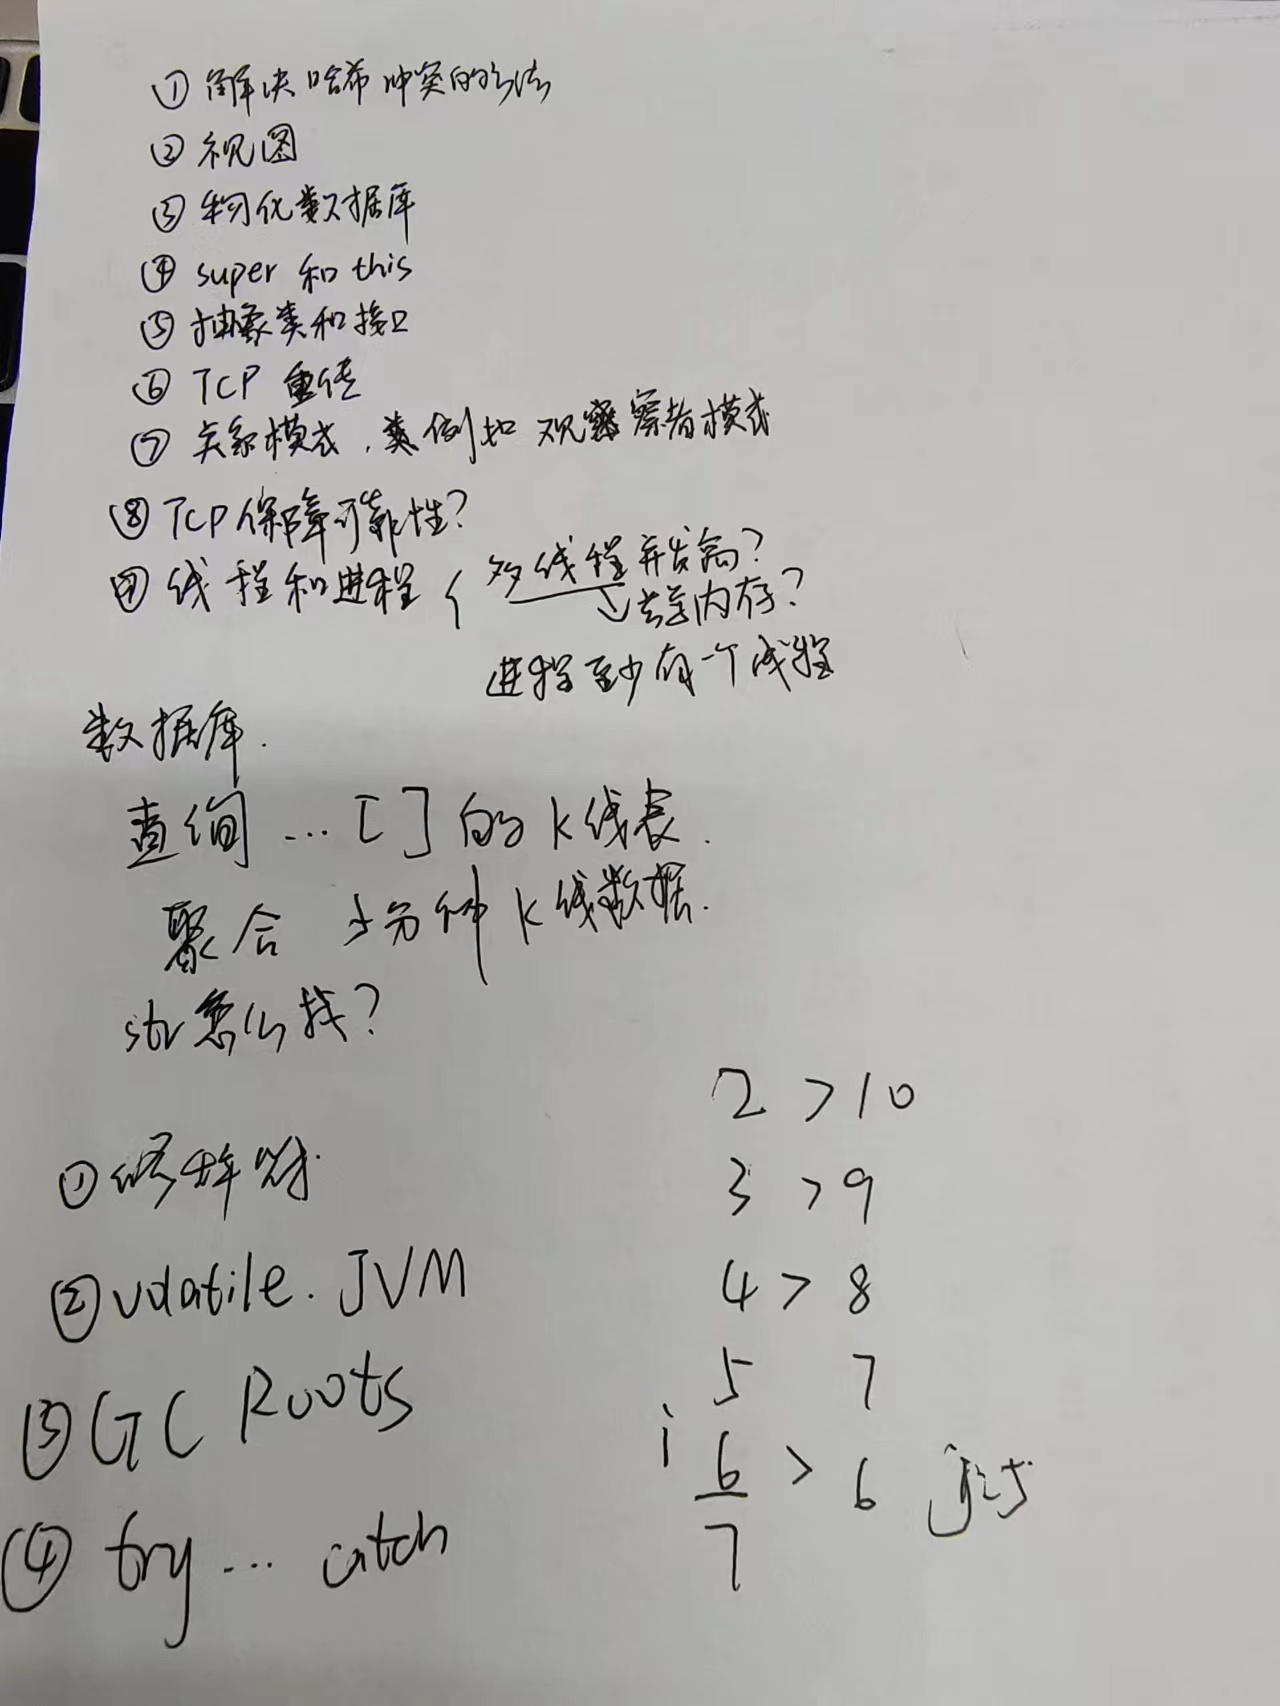 ① 解决哈希冲突的方法
② 视图
③ 物化数据库
④ super 和 this
⑤ 抽象类和接口
⑥ TCP 重传
⑦ 关系模式, 类例如 观察者模式
⑧ TCP保障可靠性?
⑨ 线程和进程 { 多线程并发高?
↓共享内存?
进程至少有一个线程
数据库.
查询 … [ ] 的 k线表.
聚合 5分钟 k线数据.
str怎么找?
① 修饰符
② volatile. JVM
③ GC Roots
④ try … catch
2 > 10
3 > 9
4 > 8
5 7
i 6 > 6
7